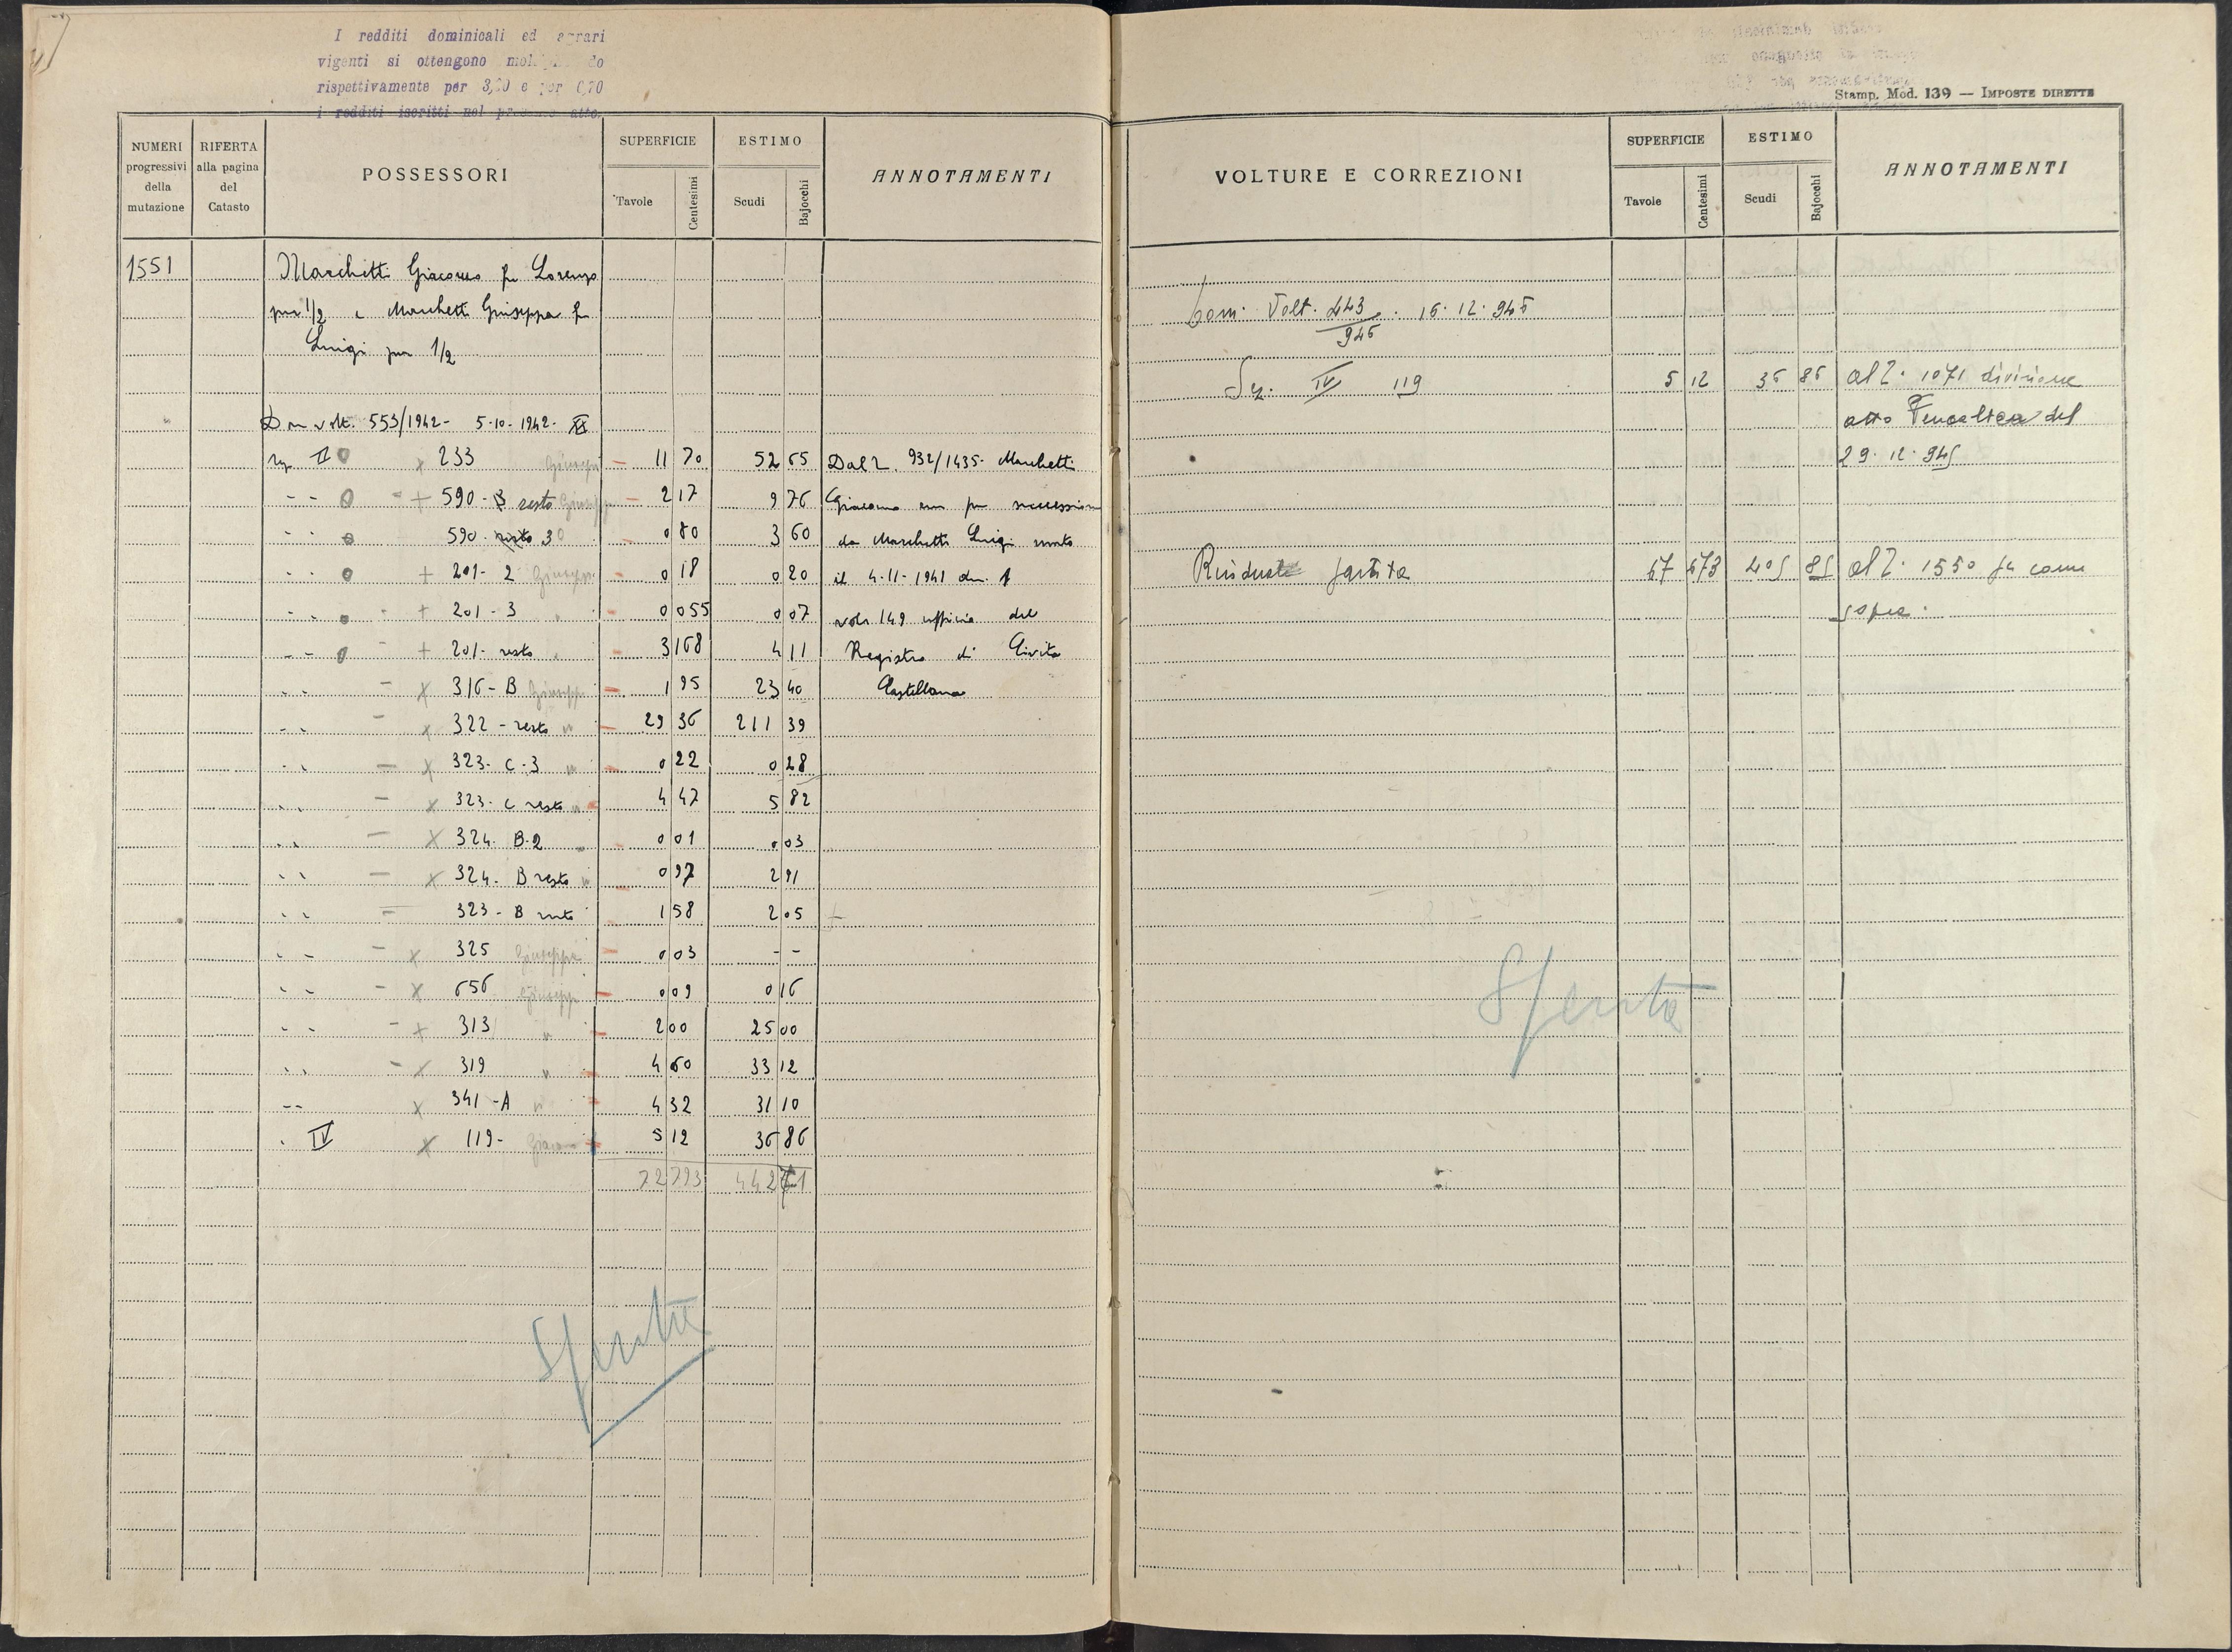 I redditi dominicali ed agrari
vigenti si ottengono do
rispettivamente per 3,20 e per 0,70
i redditi iscritti nel presente atto.
Stamp. Mod. 139 — IMPOSTE DIRETTE
NUMERI progressivi della mutazione
RIFERTA alla pagina del Catasto
POSSESSORI
SUPERFICIE
Tavole Centesimi
ESTIMO
Scudi Bajocchi
ANNOTAMENTI
1551 Marchetti Giacomo fu Lorenzo
per 1/2 e Marchetti Giuseppa fu
Luigi per 1/2
Dom volt. 553/1942 - 5-10-1942- XX
sez. II 233 Giuseppa 11 70 52 65 Dal n. 932/1435- Marchetti
" " + 590-B resto Giuseppa 2 17 9 76 Giacomo per successione
" " 590- resto 3 0 80 3 60 da Marchetti Luigi morto
" " + 201-2 Giuseppa 0 18 0 20 il 4-11-1941 den. 1
" " + 201-3 " 0 055 0 07 vol. 149 ufficio del
" " + 201- resto " 3 168 4 11 Registro di Civita
" " x 316-B Giuseppa 1 95 23 40 Castellana
" " x 322- resto " 29 36 211 39
" " x 323- C-3 " 0 22 0 28
" " x 323- C resto " 4 47 5 82
" " x 324. B-2 " 0 01 0 03
" " x 324- B resto " 0 97 2 91
" " 323- B resto 1 58 2 05
" " x 325 Giuseppa 0 03 - -
" " x 656 Giuseppa 0 09 0 16
" " + 313 " 2 00 25 00
" " x 319 " 4 60 33 12
" " x 341-A " 4 32 31 10
" IV x 119- Giacomo 5 12 36 86
72 793 442
Spenta
VOLTURE E CORREZIONI
SUPERFICIE
Tavole Centesimi
ESTIMO
Scudi Bajocchi
ANNOTAMENTI
Dom. Volt. 443/946. 16.12.946
Sez. IV 119 5 12 36 86 al n. 1071 divisione
atto del
29.12.945
Residuo partita 67 673 405 85 al n. 1550 per come
sopra.
Spenta